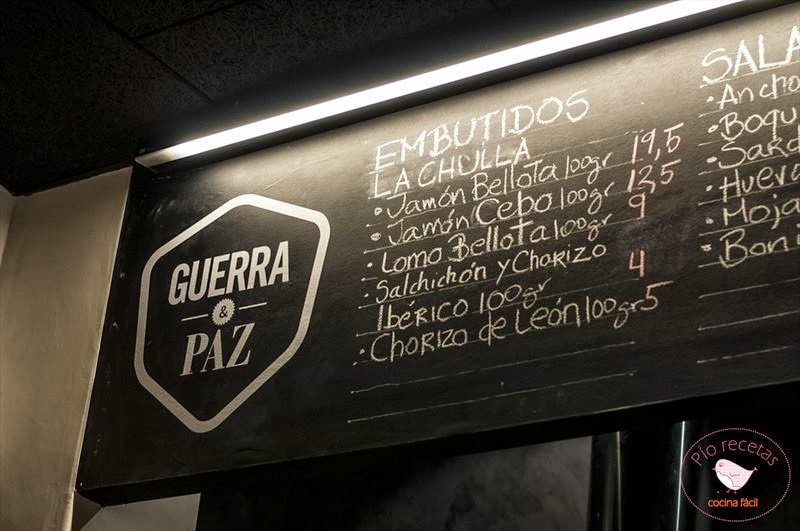 GUERRA
&
PAZ
EMBUTIDOS
LA CHULLA
• Jamón Bellota 100gr 19,5
• Jamón Cebo 100gr 13,5
• Lomo Bellota 100gr 9
• Salchichón y Chorizo
Ibérico 100gr 4
• Chorizo de León 100gr 5
SALA
• Ancho
• Boqu
• Sard
• Hueva
• Moja
• Boni
Pio recetas
cocina fácil